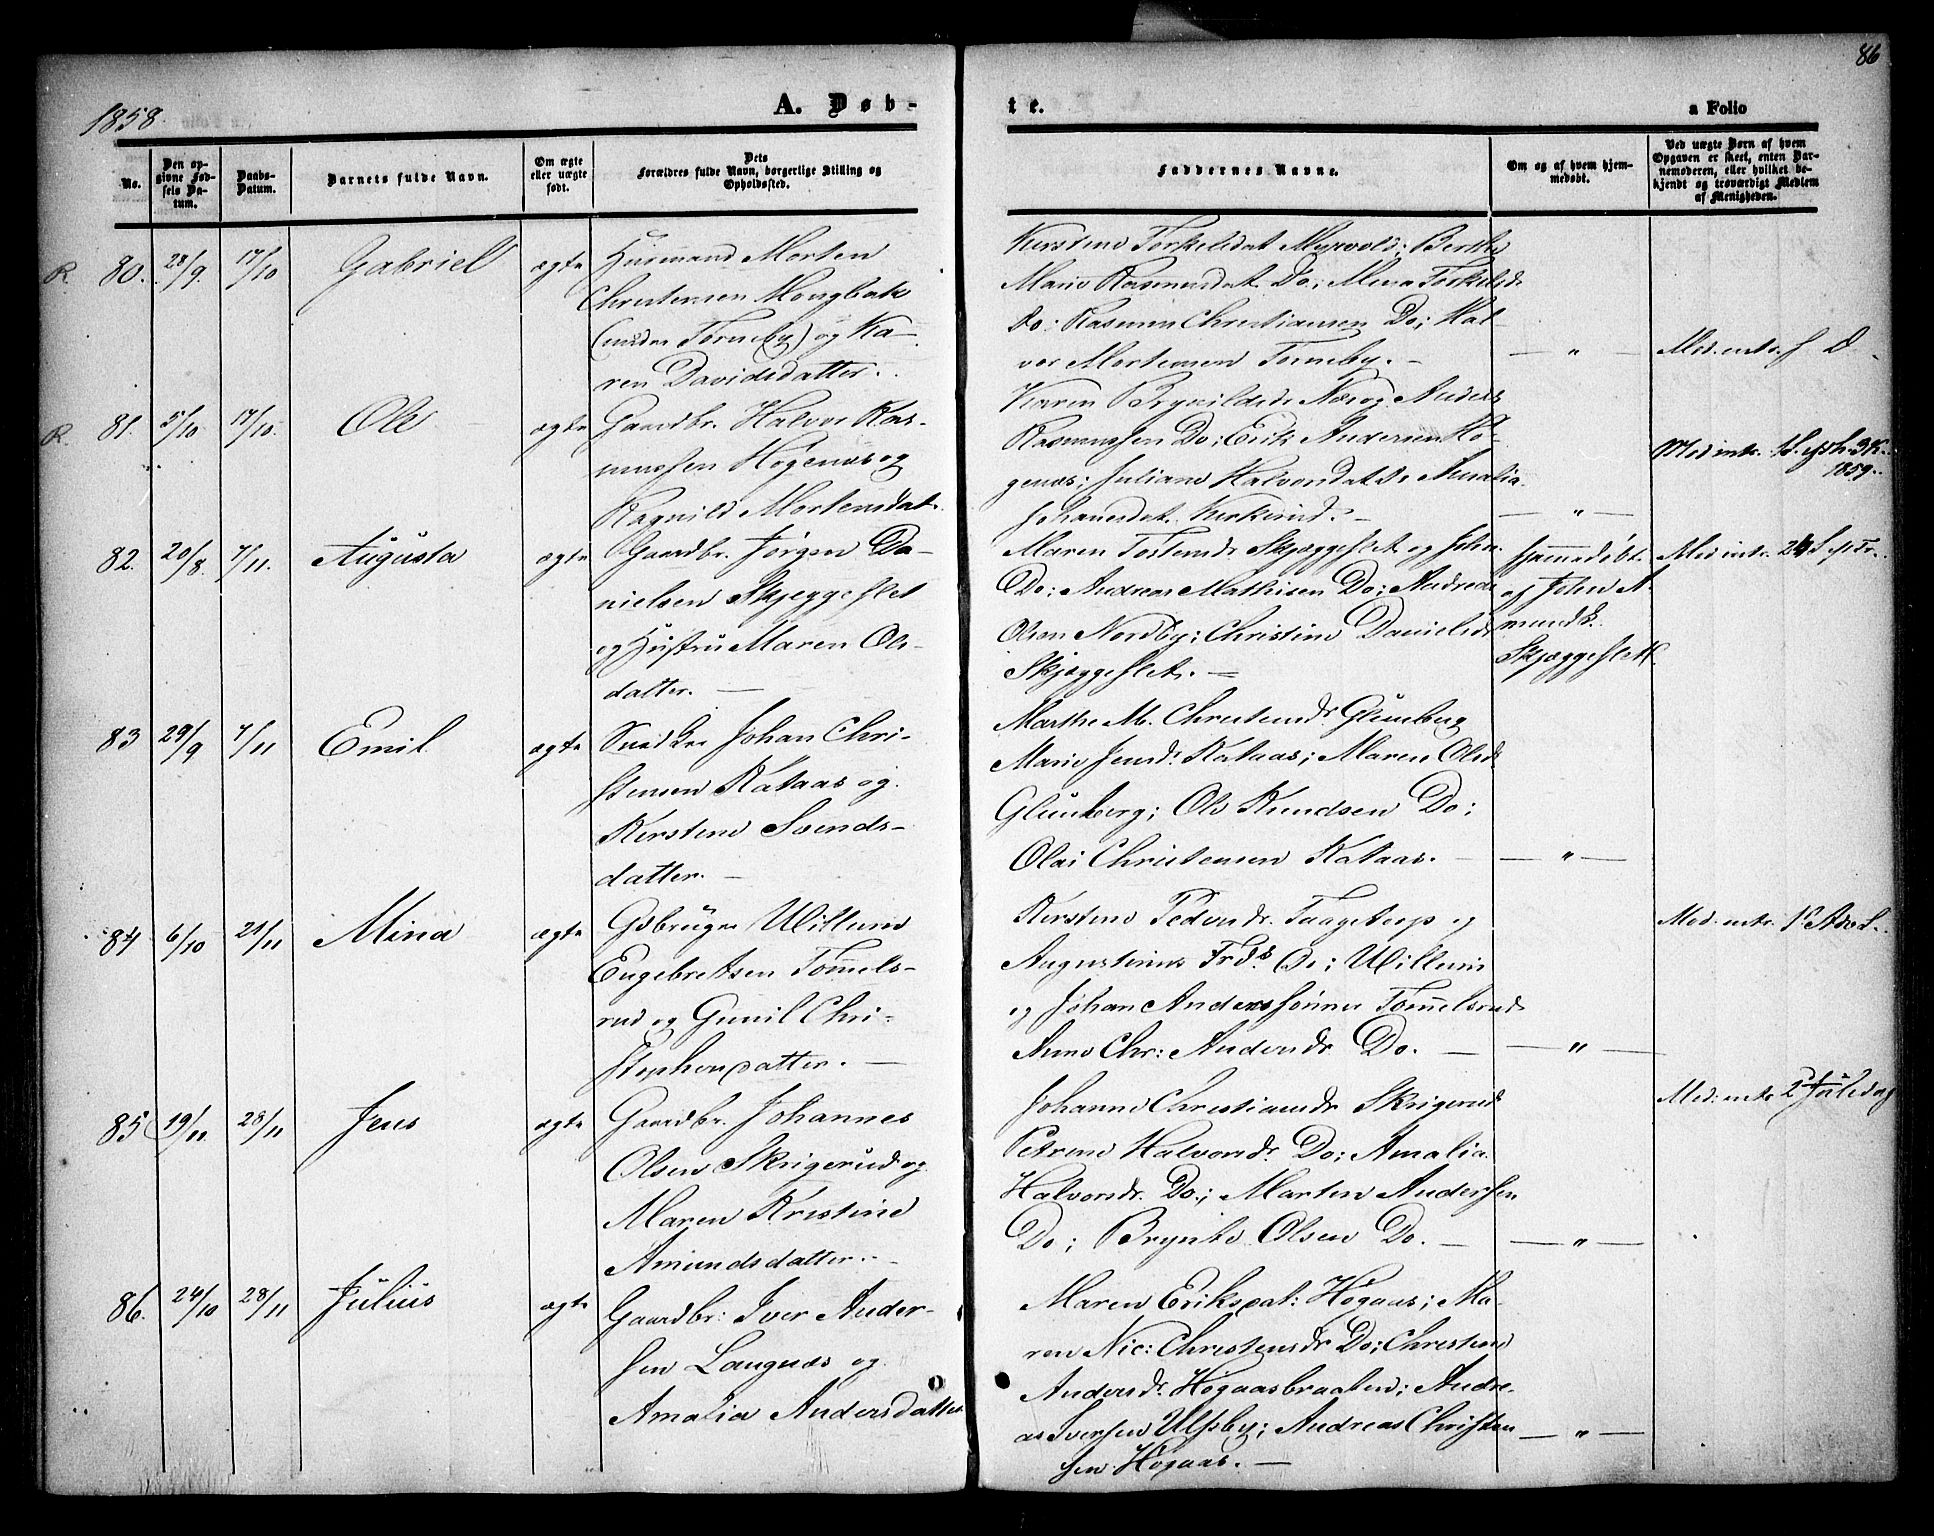 86
1858.
A. Døb-
te.
a Folio
No.
Den op-
givne Fød-
sels Da-
tum.
Daabs-
Datum.
Barnets fulde Navn.
Om ægte
eller uægte
født.
Dets
Forældres fulde Navn, borgerlige Stilling og
Opholdssted.
Faddernes Navne.
Om og af hvem hjem-
medøbt.
Ved uægte Børn af hvem
Opgaven er skeet, enten Bar-
nemoderen, eller hvilket be-
kjendt og troværdigt Medlem
af Menigheden.
R. 80. 28/9. 17/10 Gabriel ægte
Husmand Morten
Christensen Mougbak
(under Torneby) og Ka-
ren Davidsdatter.
Kirstine Torkelsdat. Myrvold; Berthe
Marie Rasmusdat. Do; Mina Torkelsd.
Do; Rasmus Christiansen Do; Hal-
vor Mortensen Torneby. -
— " —
Med. intr. f D.
R. 81. 5/10 17/10. Ole ægte
Gaardbr. Halvor Ras-
mussen Høgenæs og
Ragnild Mortensdat.
Karen Brynildsd. Næs og Anders
Rasmussen Do; Erik Andersen Hø-
genæs; Juliane Halvorsdat. Do Amalia
Johanesdat. Kirkerud. -
— " —
Med intr. 3 K.
1859.
82. 20/8. 7/11. Augusta ægte
Gaardbr. Jørgen Da-
nielsen Skjeggeslet
og Hustru Maren Ols-
datter. —
Maren Tostensdr. Skjæggeslet og John
Do; Andreas Mathisen Do; Andreas
Olsen Nordby; Christine Danielsdr
Skjæggeslet. —
Hjemmedøbt
af John A-
munds.
Skjæggeslett.
Med intr. 24 S. p Tr.
83 29/9 7/11 Emil ægte
Snedker Johan Chri-
stensen Kataas og
Kirstine Svends-
datter. —
Marthe M. Christensdr. Glenberg
Marie Jensdr. Kataas; Maren Olsd.
Glenberg; Ole Knudsen Do;
Olai Christensen Kataas. -
— " —
84 6/10 21/11 Mina ægte
Gdbruger Willum
Engebretsen Tommels-
rud og Gunil Chri-
stophersdatter. —
Kirstine Pedersdr. Taageterp og
Augustinus Frds. Do; Willum
og Johan Anderssønner Tommelsrud
Anne Chr: Andersdr Do. —
— " —
Med. intr. 1 S. Adv.
85 19/11 28/11 Jens ægte
Gaardbr. Johannes
Olsen Skrigerud og
Maren Kristine
Amundsdatter. -
Johanne Christiansdr Skrigerud
Petrine Halvorsdr. Do; Amalia
Halvorsdr. Do; Martin Andersen
Do; Brynte Olsen Do. —
— " —
Med. intr. 2 Juledag
86. 24/10 28/11 Julius ægte
Gaardbr: Iver Ander-
sen Langnæs og
Amalia Andersdatter
Maren Eriksdat: Høgaas; Ma-
ren Nic: Christensdr Do; Christine
Andersdr. Høgaasbraaten; Andre-
as Iversen Ulfsby; Andreas Christen
sen Høgaas. —
— " —